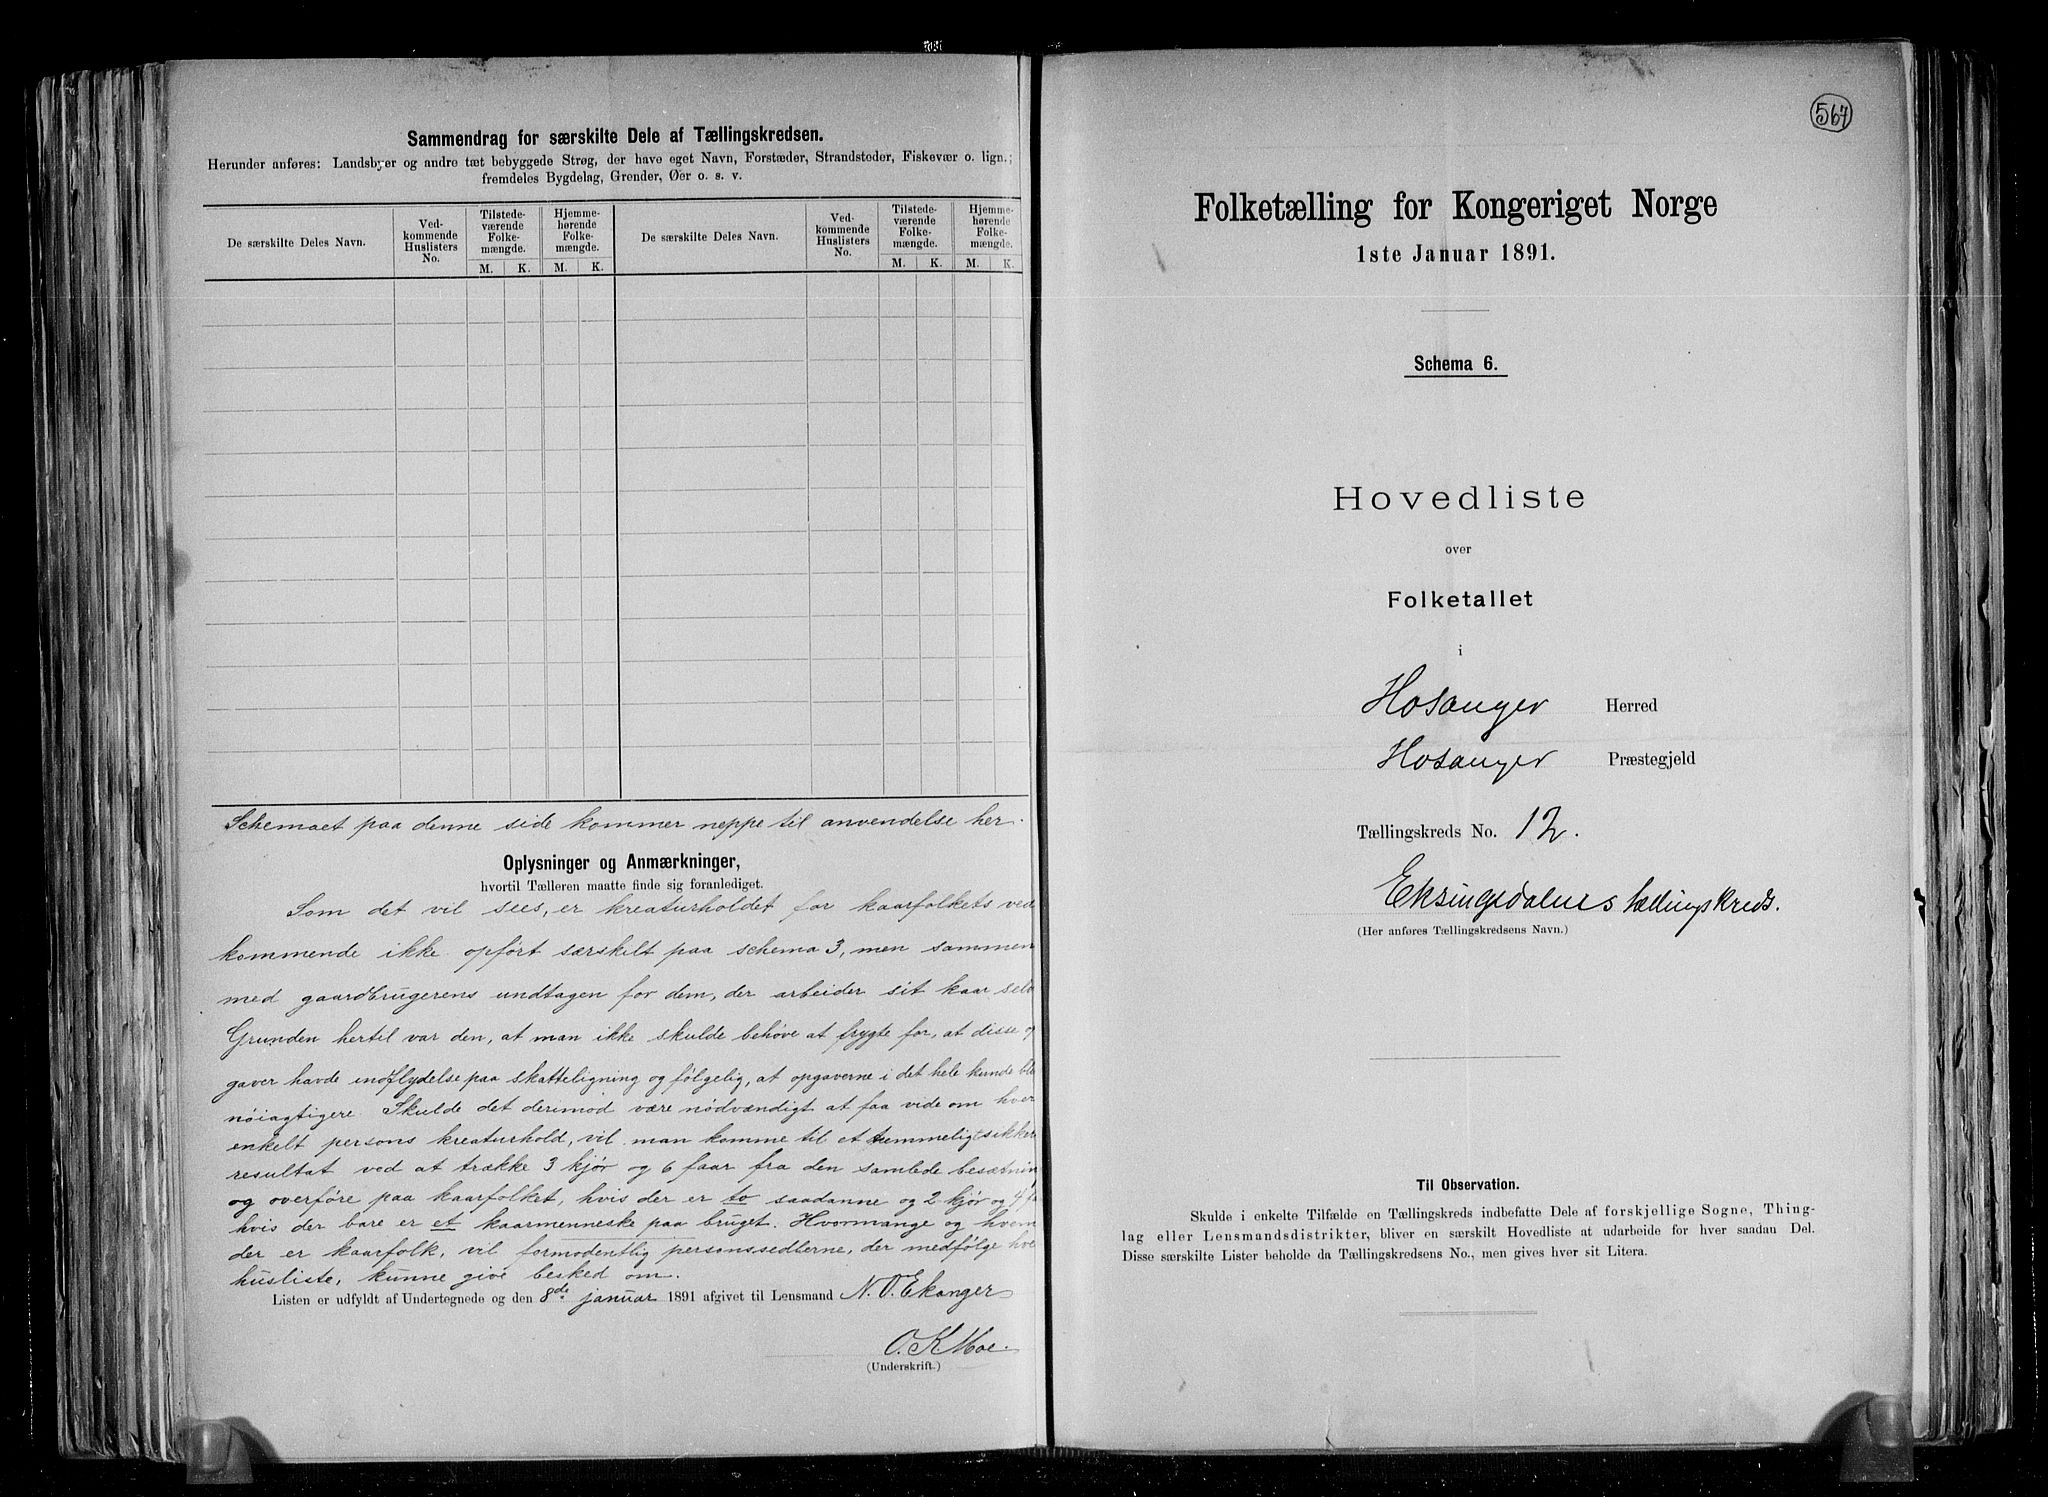 Sammendrag for særskilte Dele af Tællingskredsen.
Herunder anføres: Landsbyer og andre tæt bebyggede Strøg, der have eget Navn, Forstæder, Strandsteder, Fiskevær o. lign.;
fremdeles Bygdelag, Grender, Øer o. s. v.
De særskilte Deles Navn.
Ved-
kommende
Huslisters
No.
Tilstede-
værende
Folke-
mængde.
Hjemme-
hørende
Folke-
mængde.
De særskilte Deles Navn.
Ved-
kommende
Huslisters
No.
Tilstede-
værende
Folke-
mængde.
Hjemme-
hørende
Folke-
mængde.
M. K. M. K. M. K. M. K.
Schemaet paa denne side kommer neppe til anvendelse her.
Oplysninger og Anmærkninger,
hvortil Tælleren maatte finde sig foranlediget.
Som det vil sees, er kreaturholdet for kaarfolkets ved
kommende ikke opført særskilt paa schema 3, men sammen
med gaardbrugerens undtagen for dem, der arbeider sit kaar selv
Grunden hertil var den, at man ikke skulde behøve at frygte for, at disse op
gaver havde indflydelse paa skatteligning og følgelig, at opgaverne i det hele kunde bli
nøiagtigere. Skulde det derimod være nødvændigt at faa vide om hver
enkelt persons kreaturhold, vil man komme til et temmeligt sikkert
resultat ved at trække 3 kjør og 6 faar fra den samlede besætnin
og overføre paa kaarfolket, hvis der er to saadanne og 2 kjør og 4 fa
hvis der bare er et kaarmenneske paa bruget. Hvormange og hvem
der er kaarfolk, vil formodentlig personssedlerne, der medfølge hve
husliste, kunne give besked om.
Listen er udfyldt af Undertegnede og den 8de januar 1891 afgivet til Lensmand N. O. Ekanger
O. K. Moe.
(Underskrift.)
567
Folketælling for Kongeriget Norge
1ste Januar 1891.
Schema 6.
Hovedliste
over
Folketallet
i
Hosanger Herred
Hosanger Præstegjeld
Tællingskreds No. 12.
Eksingsdalens tællingskreds.
(Her anføres Tællingskredsens Navn.)
Til Observation.
Skulde i enkelte Tilfælde en Tællingskreds indbefatte Dele af forskjellige Sogne, Thing-
lag eller Lensmandsdistrikter, bliver en særskilt Hovedliste at udarbeide for hver saadan Del.
Disse særskilte Lister beholde da Tællingskredsens No., men gives hver sit Litera.